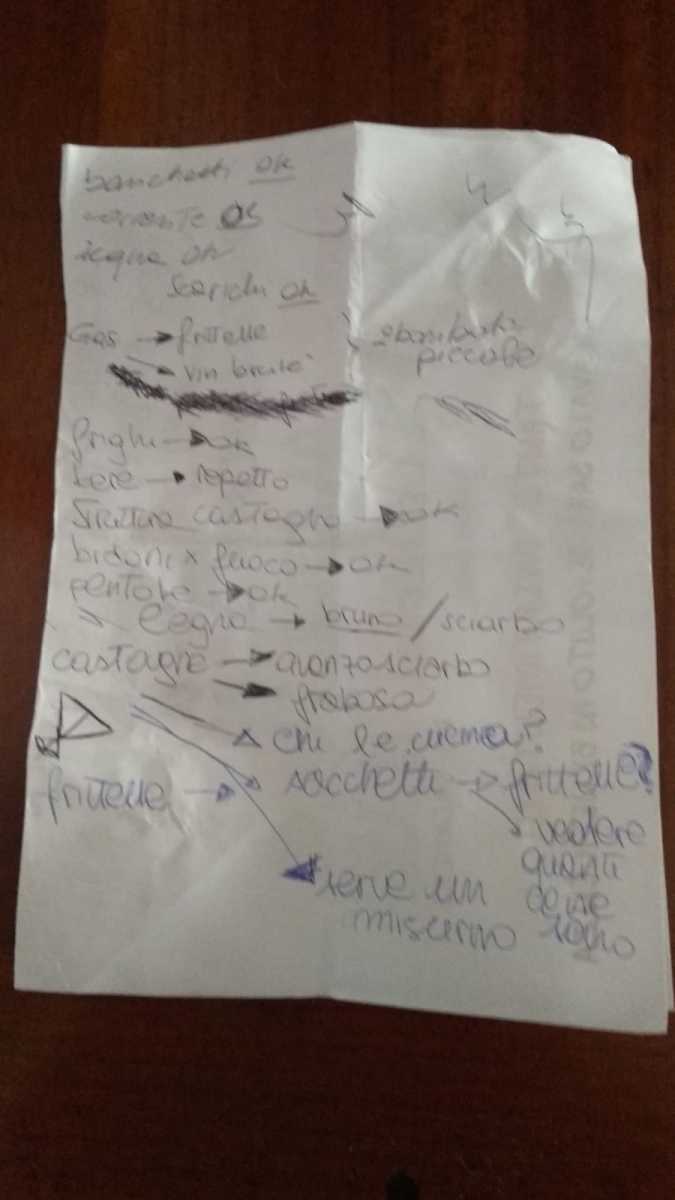 banchetti ok
corrente ok
acqua ok
scarichi ok
Gas → frittelle
→ vin brulé
2 bombole
piccole
frighi → ok
bere → repetto
struttura castagne → ok
bidoni x fuoco → ok
pentole → ok
legna → bruno / sciarbo
castagne → avanzo sciarbo
→ frabosa
→ chi le ?
frittelle → sacchetti → frittelle?
→ vedere
quanti
ce ne
sono
serve un
misurino